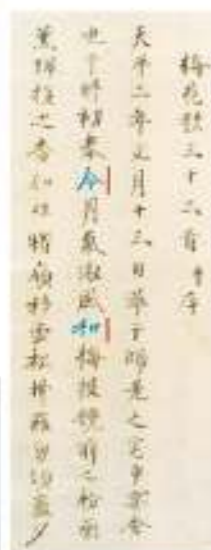 梅花歌三十二首 并序
天平二年正月十三日萃于帥老之宅申宴會
也于時初春令月氣淑風和梅披鏡前之粉蘭
薫珮後之香加以曙嶺移雲松掛羅而傾蓋夕